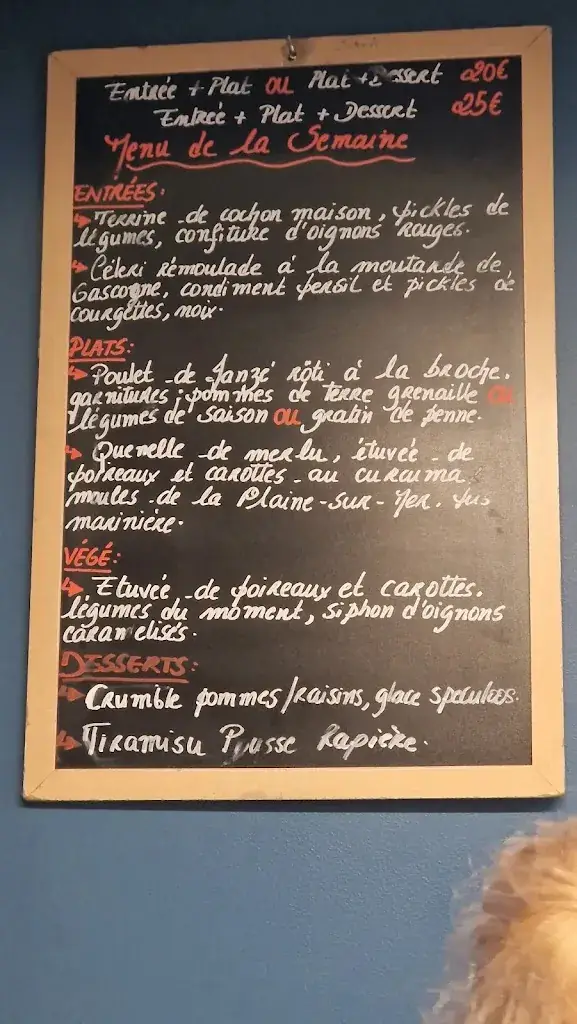 Entrée + Plat OU Plat + Dessert 20€
Entrée + Plat + Dessert 25€
Menu de la Semaine
ENTRÉES:
Terrine de cochon maison, pickles de
légumes, confiture d'oignons rouges.
Céleri rémoulade à la moutarde de
Gascogne, condiment persil et pickles de
courgettes, noix.
PLATS:
Poulet de Janzé rôti à la broche.
garnitures: pommes de terre grenaille OU
légumes de saison OU gratin de penne.
Quenelle de merlu, étuvée de
poireaux et carottes au curcuma
moules de la Plaine-sur-Mer. Jus
marinière.
VÉGÉ:
Etuvée de poireaux et carottes.
légumes du moment, siphon d'oignons
caramelisés.
DESSERTS:
Crumble pommes/raisins, glace speculoos.
Tiramisu Pousse Rapière.